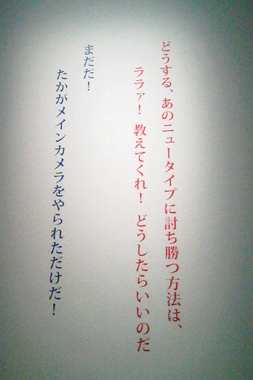 どうする、あのニュータイプに討ち勝つ方法は、
ララァ！ 教えてくれ！ どうしたらいいのだ
まだだ！
たかがメインカメラをやられただけだ！